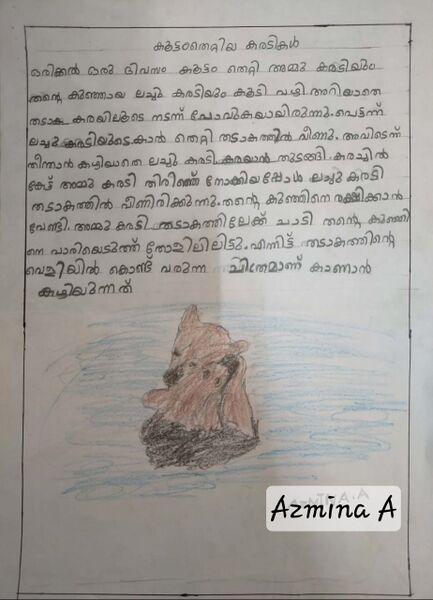 കൂട്ടംതെറ്റിയ കരടികൾ
ഒരിക്കൽ ഒരു ദിവസം കൂട്ടം തെറ്റി അമ്മു കരടിയും
തന്റെ കുഞ്ഞായ ലച്ചു കരടിയും കൂടി വഴി അറിയാതെ
തടാക കരയിലൂടെ നടന്ന് പോവുകയായിരുന്നു. പെട്ടന്ന്
ലച്ചു കരടിയുടെ കാൽ തെറ്റി തടാകത്തിൽ വീണു. അവിടെന്ന്
നീന്താൻ കഴിയാതെ ലച്ചു കരടി കരയാൻ തുടങ്ങി. കരച്ചിൽ
കേട്ട് അമ്മു കരടി തിരിഞ്ഞ് നോക്കിയപ്പോൾ ലച്ചു കരടി
തടാകത്തിൽ വീണിരിക്കുന്നു. തന്റെ കുഞ്ഞിനെ രക്ഷിക്കാൻ
വേണ്ടി. അമ്മു കരടി തടാകത്തിലേക്ക് ചാടി തന്റെ കുഞ്ഞി
നെ വാരിയെടുത്ത് തോളിലിട്ടു. എന്നിട്ട് തടാകത്തിന്റെ
വെളിയിൽ കൊണ്ട് വരുന്ന ചിത്രമാണ് കാണാൻ
കഴിയുന്നത്
Azmina A